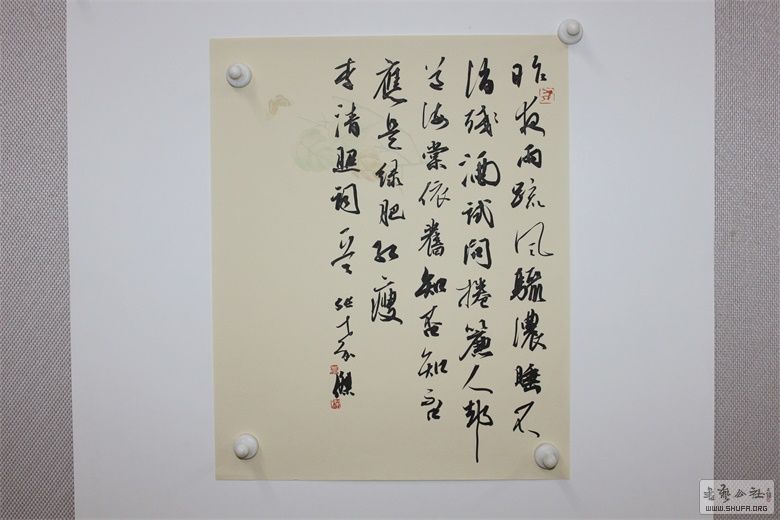 昨夜雨疏风驟濃睡不
消残酒試問捲簾人却
道海棠依舊知否知否
應是绿肥红瘦
李清照詞一首
书艺公社
WWW.SHUFA.ORG